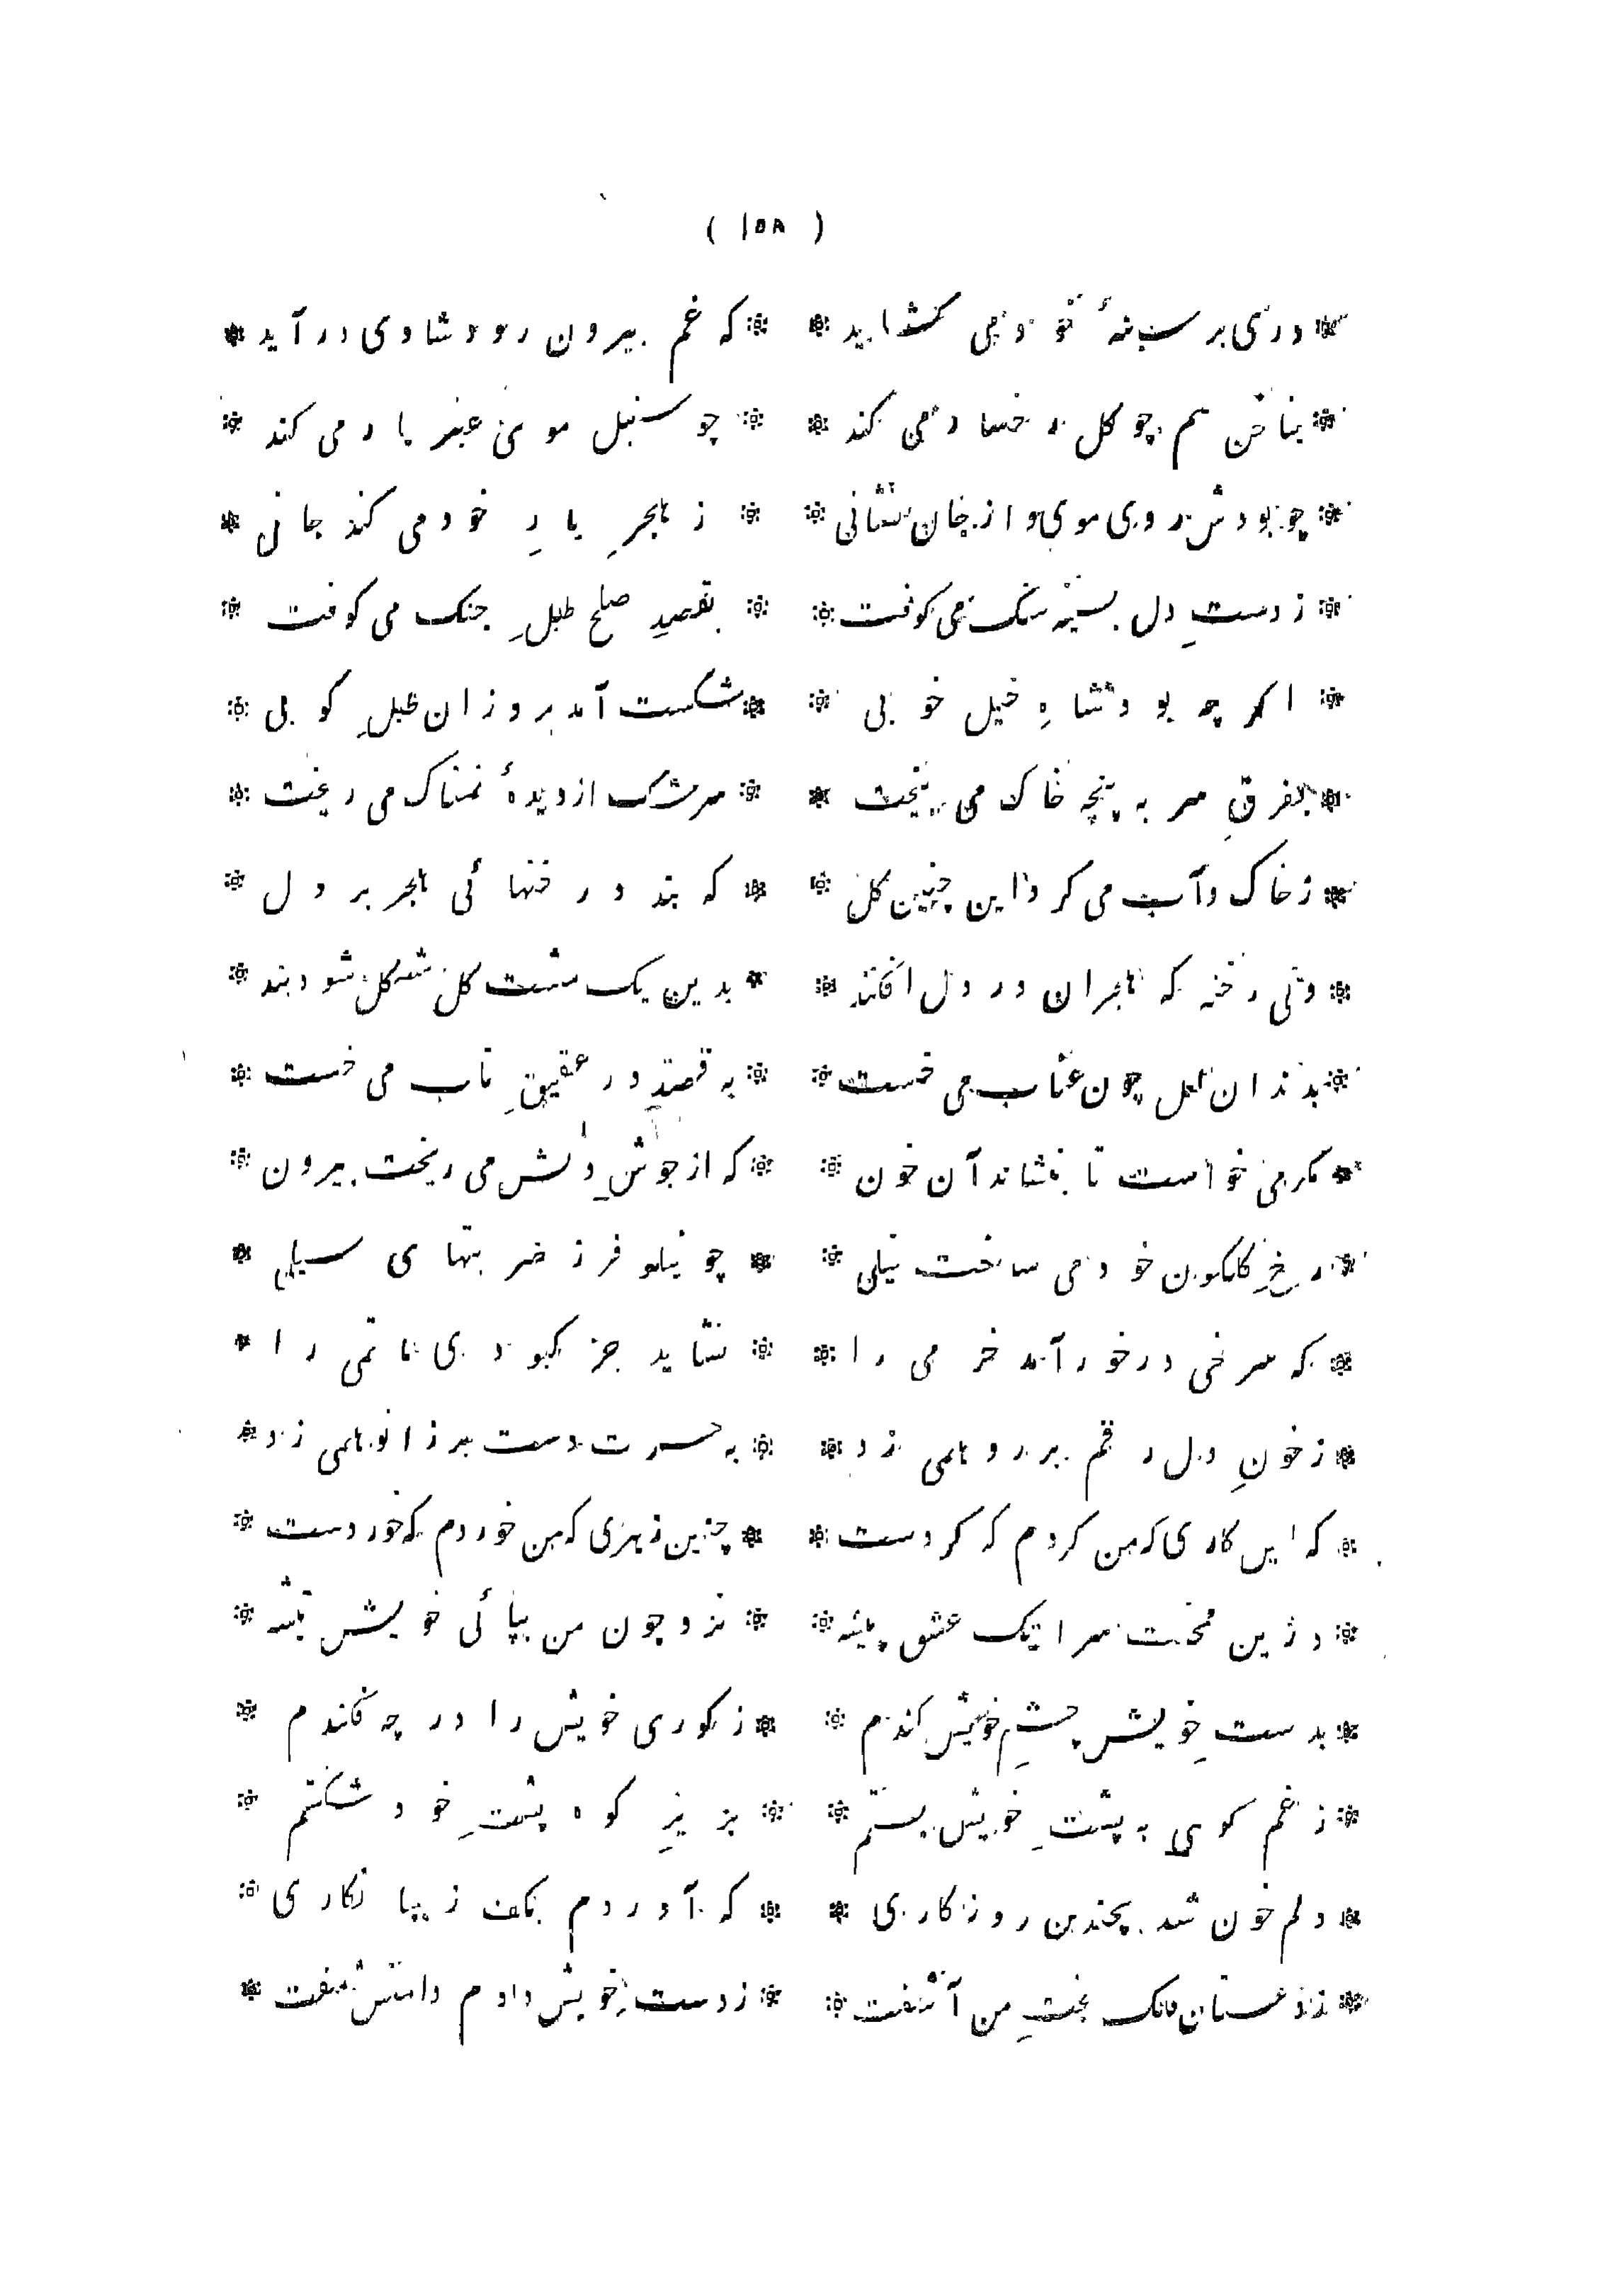 ( ١٥٨ )
* دری بر سینهٔ خود می کشاید * * که غم بیرون رود شادی در آید *
* بناخن هم چو کل رخسار می کند * * چو سنبل موی عنبر بار می کند *
* چو بودش روی موی و از جان نشانی * * ز هجرِ یارِ خود می کند جانی *
* ز دستِ دل بسینه سنک می کوفت * * بقصدِ صلح طبلِ جنک می کوفت *
* اکر چه بود شاهِ خیل خوبی * * شکست آمد برو زان طبلِ کوبی *
* بفرقِ سر به پنجه خاک می بیخت * * سرشک از دیدهٔ نمناک می ریخت *
* ز خاک و آب می کرد این چنین کل * * که بندد رخنهائی هجر بر دل *
* ولی رخنه که هجران در دل افکند * * بدین یک مشت کل شکل شود بند *
* بدندان لعل چون عناب می خست * * به قصدِ در عقیقِ ناب می خست *
* مکر می خواست تا بنشاند آن خون * * که از جوشِ دلش می ریخت بیرون *
* رخِ کلکون خود می ساخت نیلی * * چو نیلوفر ز ضربتهای سیلی *
* که سرخی در خور آمد خرمی را * * نشاید جز کبودی ماتمی را *
* ز خونِ دل رقم بر رو همی زد * * به حسرت دست بر زانو همی زد *
* که ایں کاری که من کردم که کردست * * چنین زهری که من خوردم که خوردست *
* درین محنت سرا یک عشق پیشه * * نزد چون من بپائی خویش تیشه *
* بدستِ خویش چشمِ خویش کندم * * ز کوری خویش را در چه فکندم *
* ز غم کوهی به پشتِ خویش بستم * * بزیرِ کوه پشتِ خود شکستم *
* دلم خون شد بچندین روزکاری * * که آوردم بکف زیبا نکاری *
* ز دستان فلک بختِ من آشفت * * ز دستِ خویش دادم دامنش مفت *